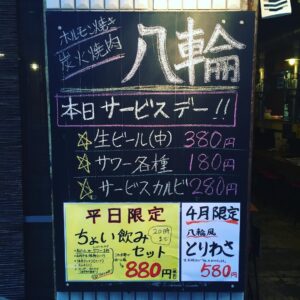 ホルモン焼き
炭火焼肉
八輪
本日サービスデー!!
☆生ビール(中) 380円
☆サワー各種 180円
☆サービスカルビ 280円
平日限定
ちょい飲み
セット
20時まで
880円
4月限定
八輪風
とりわさ
580円